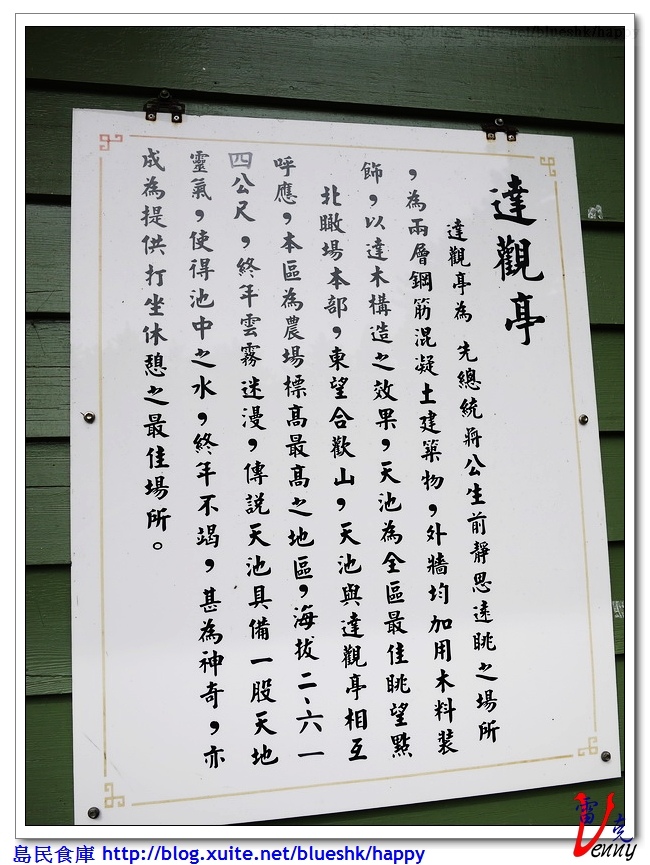 達觀亭
達觀亭為 先總統蔣公生前靜思遠眺之場所
,為兩層鋼筋混凝土建築物,外牆均加用木料裝
飾,以達木構造之效果,天池為全區最佳眺望點
北瞰場本部,東望合歡山,天池與達觀亭相互
呼應,本區為農場標高最高之地區,海拔二、六一
四公尺,終年雲霧迷漫,傳說天池具備一股天地
靈氣,使得池中之水,終年不竭,甚為神奇,亦
成為提供打坐休憩之最佳場所。
雷克
Venny
島民食庫 http://blog.xuite.net/blueshk/happy